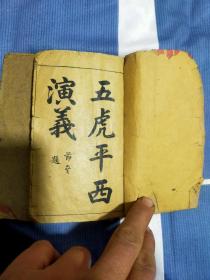 五虎平西
演義
題